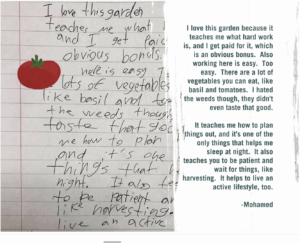 I love this garden
teacher me what
and I get paid
obvious bonus.
here is easy T
lots of vegetables
like basil and
the weeds though
taste that goo
me how to plan
and it's one
things that h
night. It also te
to be patient an
like harvesting.
live an active
I love this garden because it
teaches me what hard work
is, and I get paid for it, which
is an obvious bonus. Also
working here is easy. Too
easy. There are a lot of
vegetables you can eat, like
basil and tomatoes. I hated
the weeds though, they didn't
even taste that good.
It teaches me how to plan
things out, and it's one of the
only things that helps me
sleep at night. It also
teaches you to be patient and
wait for things, like
harvesting. It helps to live an
active lifestyle, too.
-Mohamed